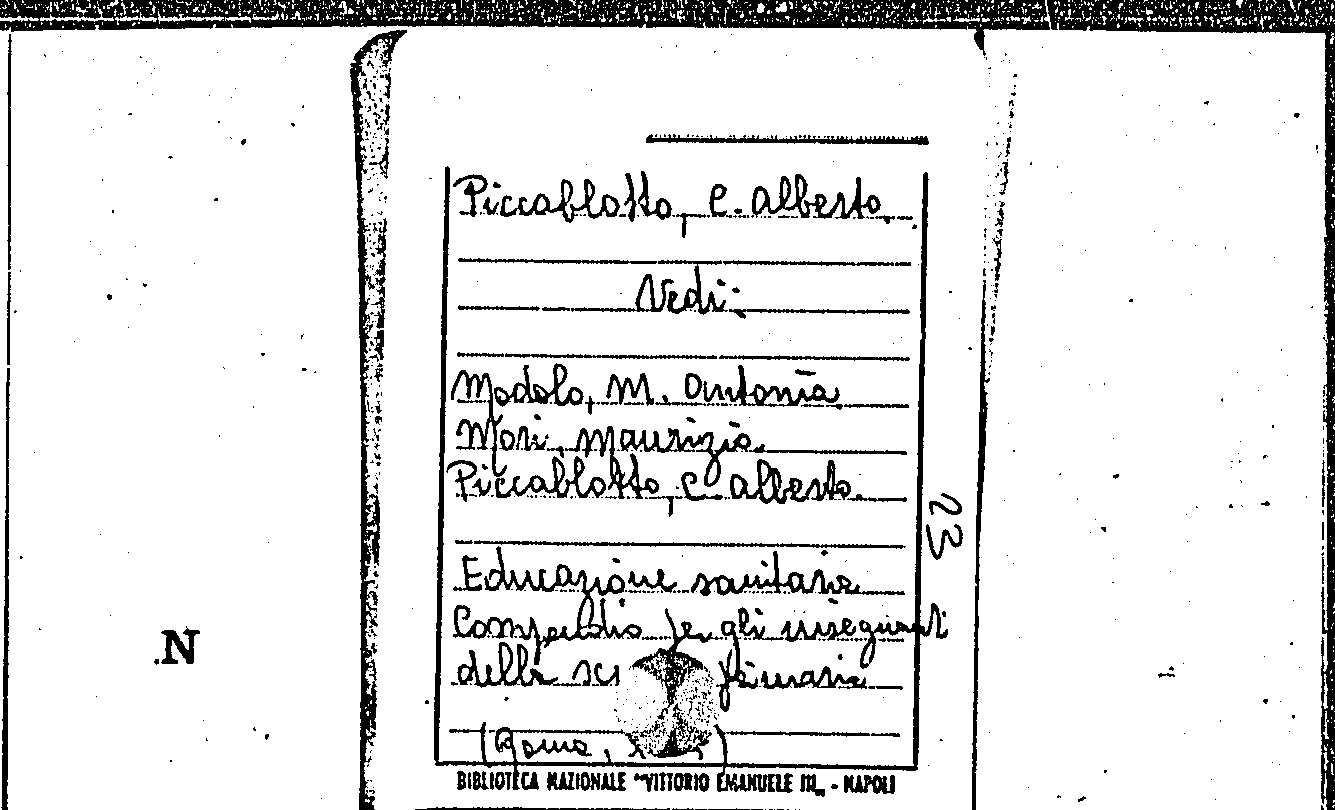 Piccablotto, C. Alberto.
Vedi:
Modolo, M. Antonia.
Mori, Maurizio.
Piccablotto, C. Alberto.
23
Educazione sanitaria
Compendio per gli insegnanti
della primaria
(Roma,
N
BIBLIOTECA NAZIONALE "VITTORIO EMANUELE III„ - NAPOLI